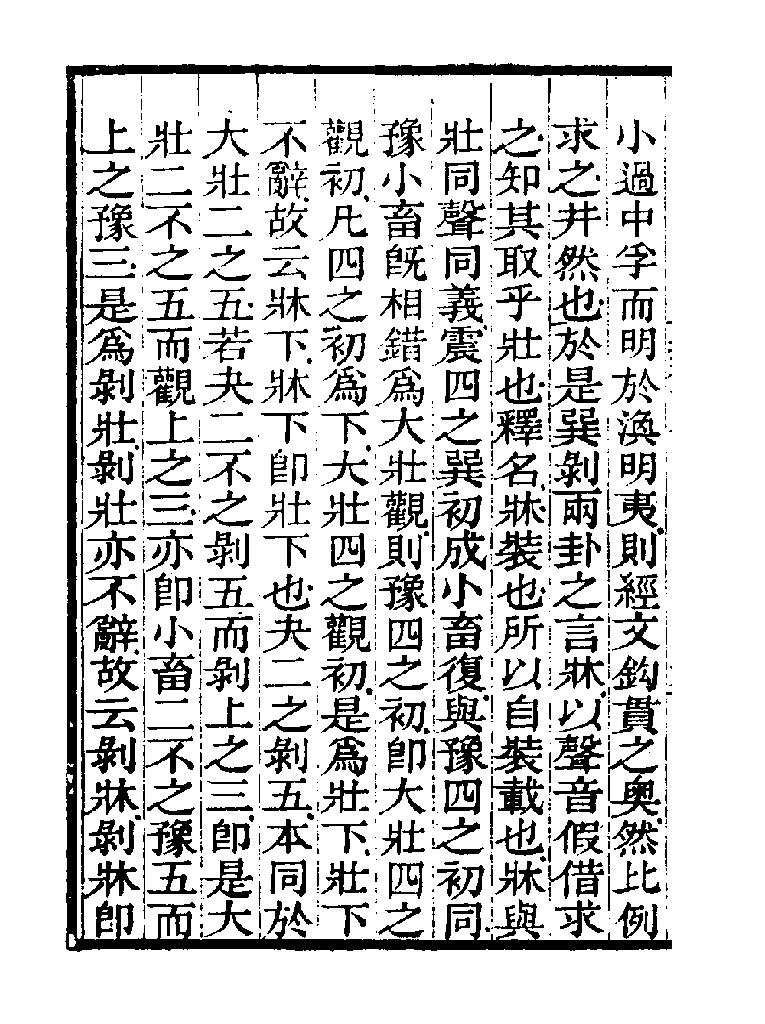 小過中孚而明於渙明夷則經文鈎貫之奧然比例
求之井然也於是巽剝兩卦之言牀以聲音假借求
之知其取乎壯也釋名牀裝也所以自裝載也牀與
壯同聲同義震四之巽初成小畜復與豫四之初同
豫小畜旣相錯爲大壯觀則豫四之初卽大壯四之
觀初凡四之初爲下大壯四之觀初是爲壯下壯下
不辭故云牀下牀下卽壯下也夬二之剝五本同於
大壯二之五若夬二不之剝五而剝上之三卽是大
壯二不之五而觀上之三亦卽小畜二不之豫五而
上之豫三是爲剝壯剝壯亦不辭故云剝牀剝牀卽